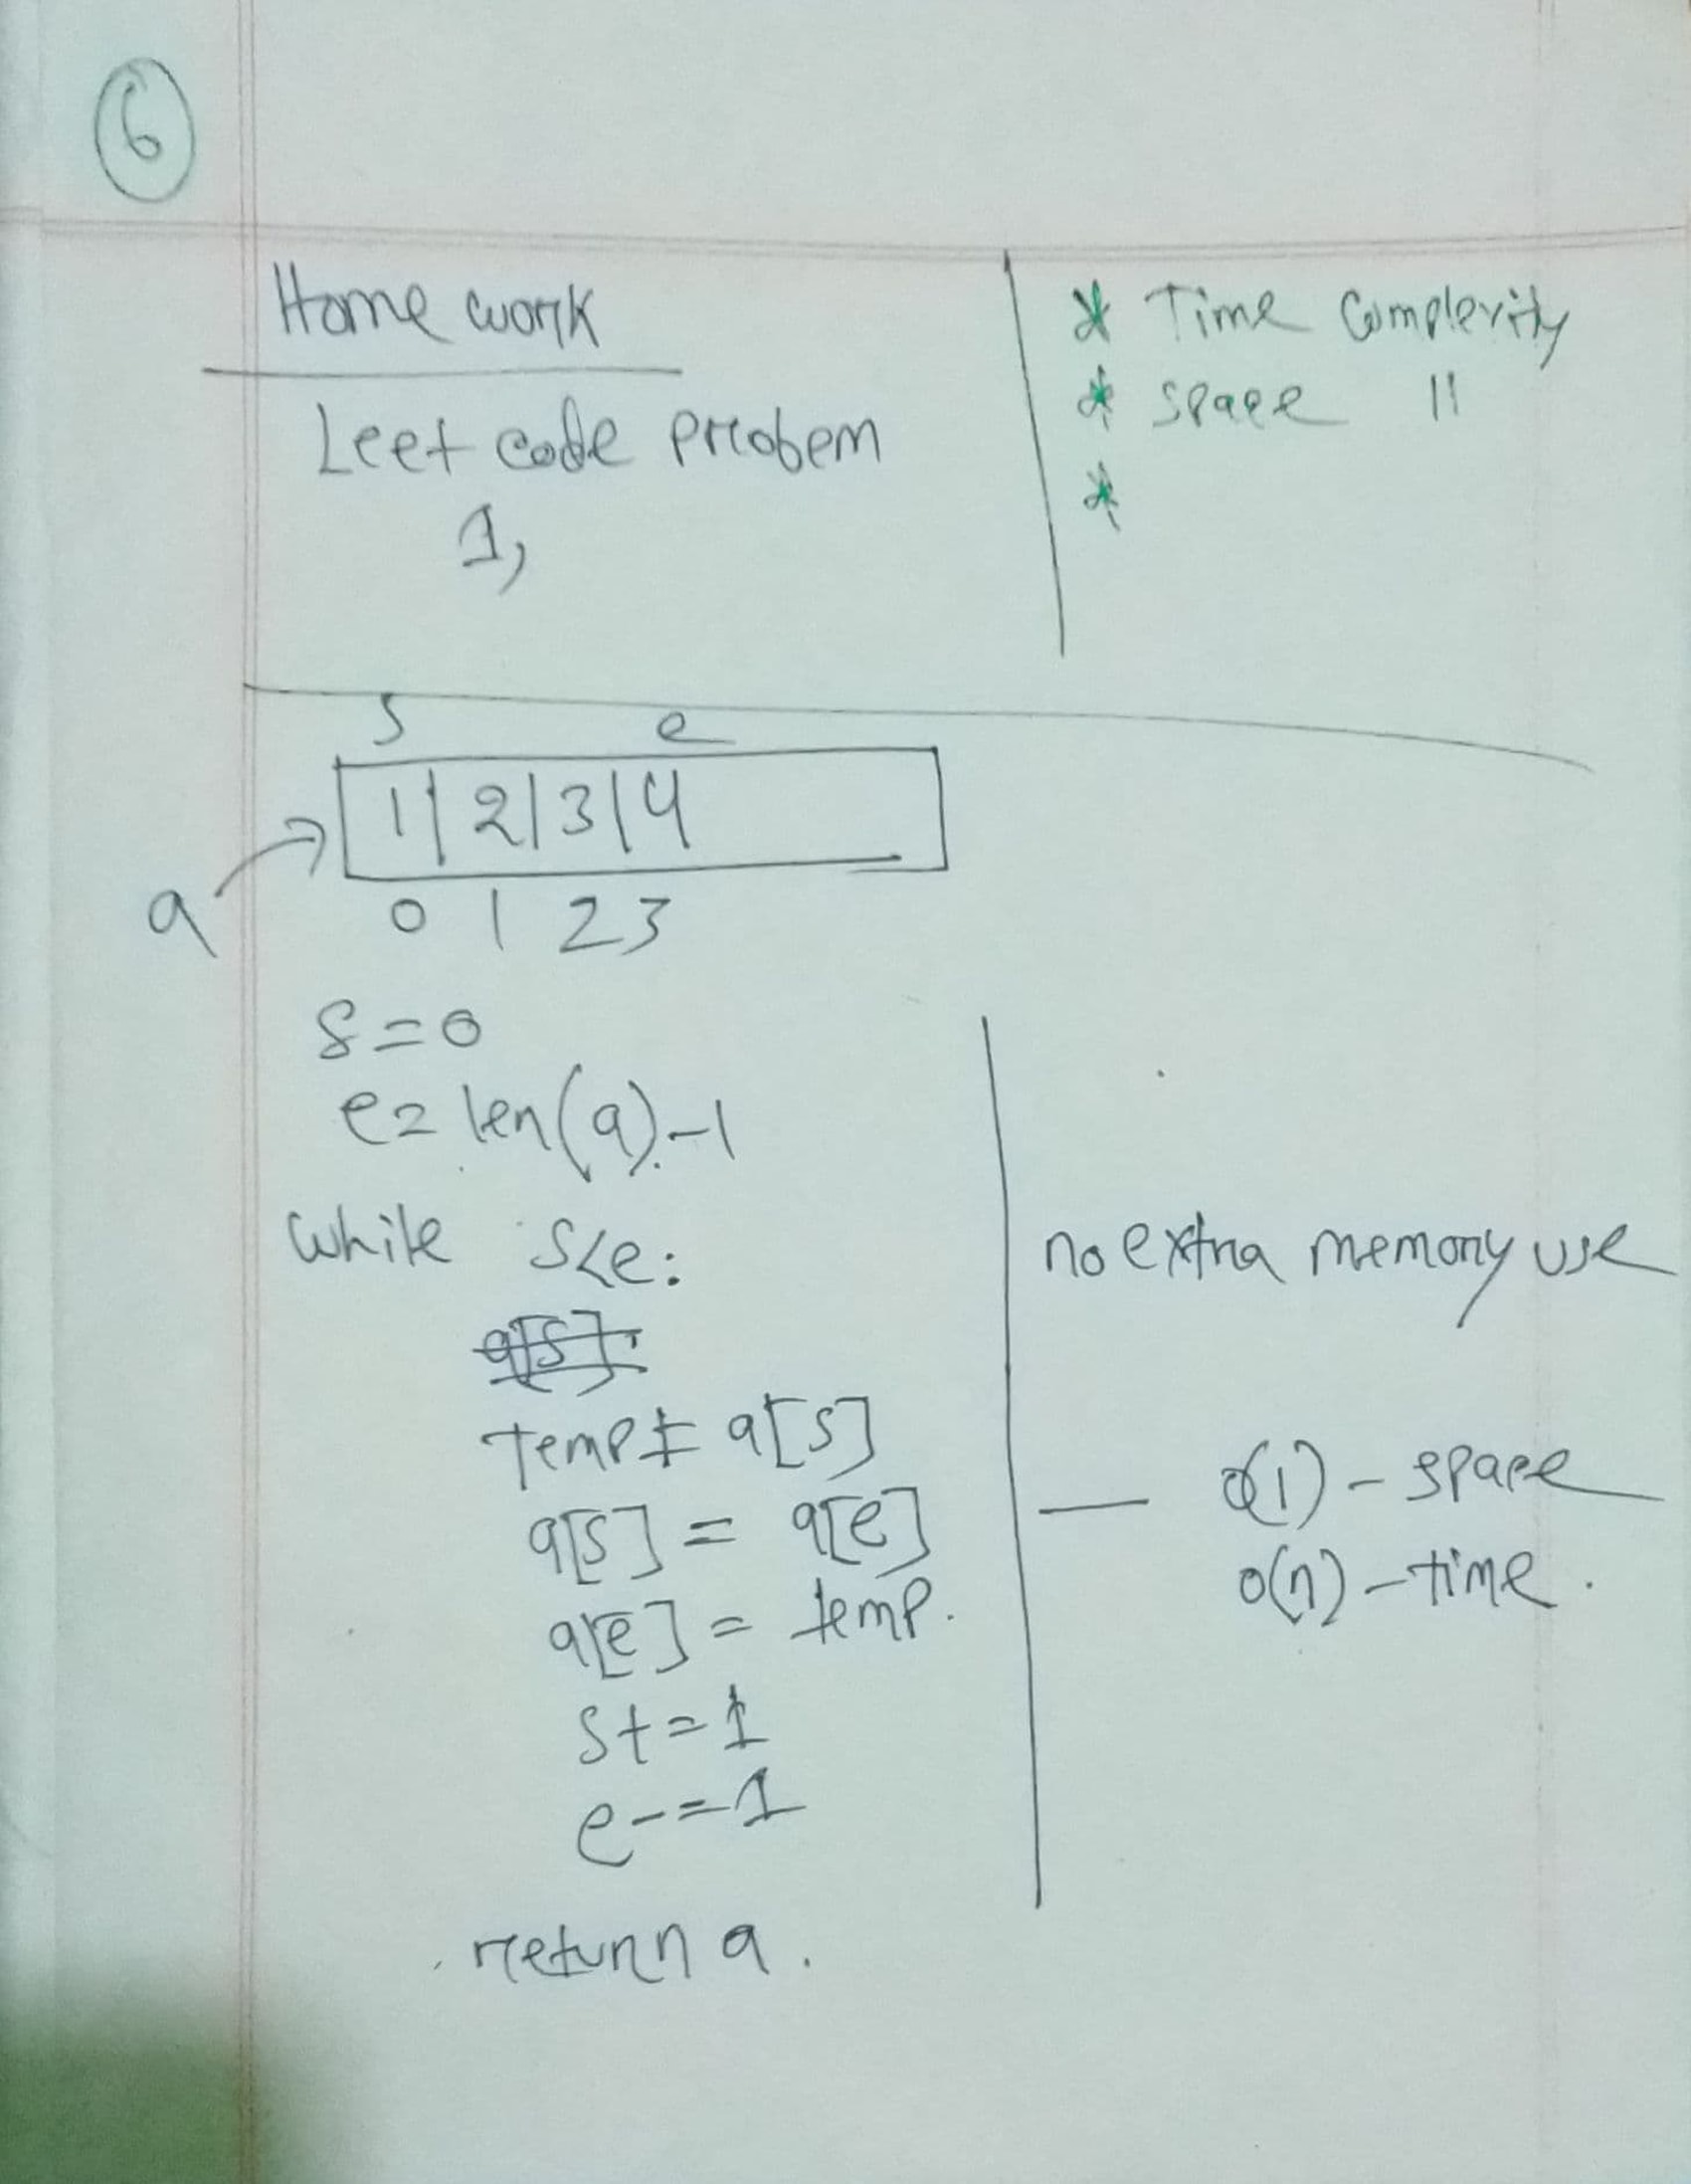 6
Home work
Leet code probem
1,
* Time Complexity
* space "
*
s e
1|2|3|4
a
0 1 2 3
s=0
e= len(a)-1
while s<e:
temp = a[s]
a[s] = a[e]
a[e] = temp.
s+=1
e-=1
return a.
no extra memory use
O(1) - space
O(n) - time.